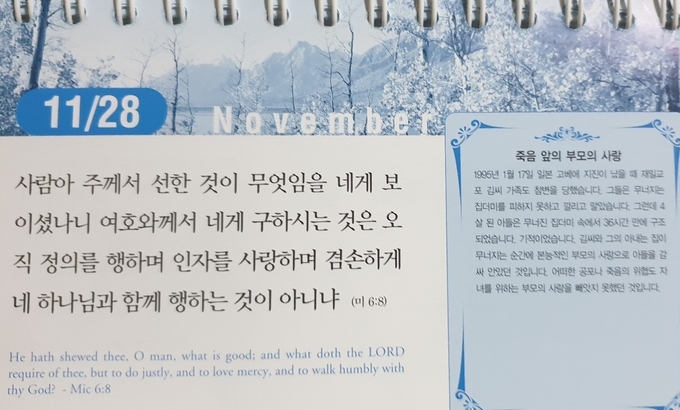 11/28
November
사람아 주께서 선한 것이 무엇임을 네게 보
이셨나니 여호와께서 네게 구하시는 것은 오
직 정의를 행하며 인자를 사랑하며 겸손하게
네 하나님과 함께 행하는 것이 아니냐 (미 6:8)
He hath shewed thee, O man, what is good; and what doth the LORD
require of thee, but to do justly, and to love mercy, and to walk humbly with
thy God? - Mic 6:8
죽음 앞의 부모의 사랑
1995년 1월 17일 일본 고베에 지진이 났을 때 재일교
포 김씨 가족도 참변을 당했습니다. 그들은 무너지는
집더미를 피하지 못하고 깔리고 말았습니다. 그런데 4
살 된 아들은 무너진 집더미 속에서 36시간 만에 구조
되었습니다. 기적이었습니다. 김씨와 그의 아내는 집이
무너지는 순간에 본능적인 부모의 사랑으로 아들을 감
싸 안았던 것입니다. 어떠한 공포나 죽음의 위협도 자
녀를 위하는 부모의 사랑을 빼앗지 못했던 것입니다.